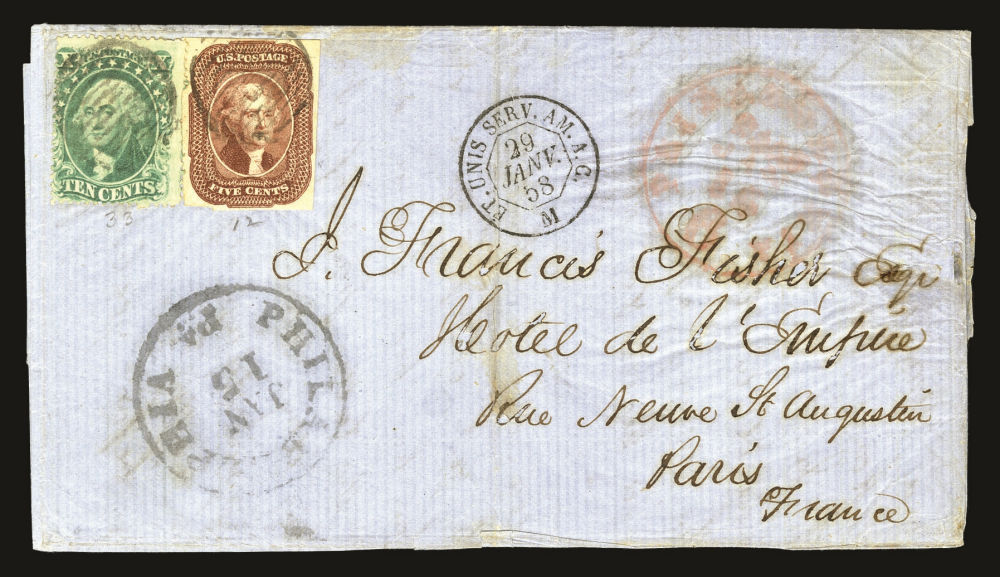 U.S. POSTAGE
TEN CENTS
FIVE CENTS
33
12
ET. UNIS SERV. AM. A. C.
29
JANV.
58
M
J. Francis Fisher Esqr
Hotel de l'Empire
Rue Neuve St Augustin
Paris
France
PHILADELPHIA Pa
JAN
15